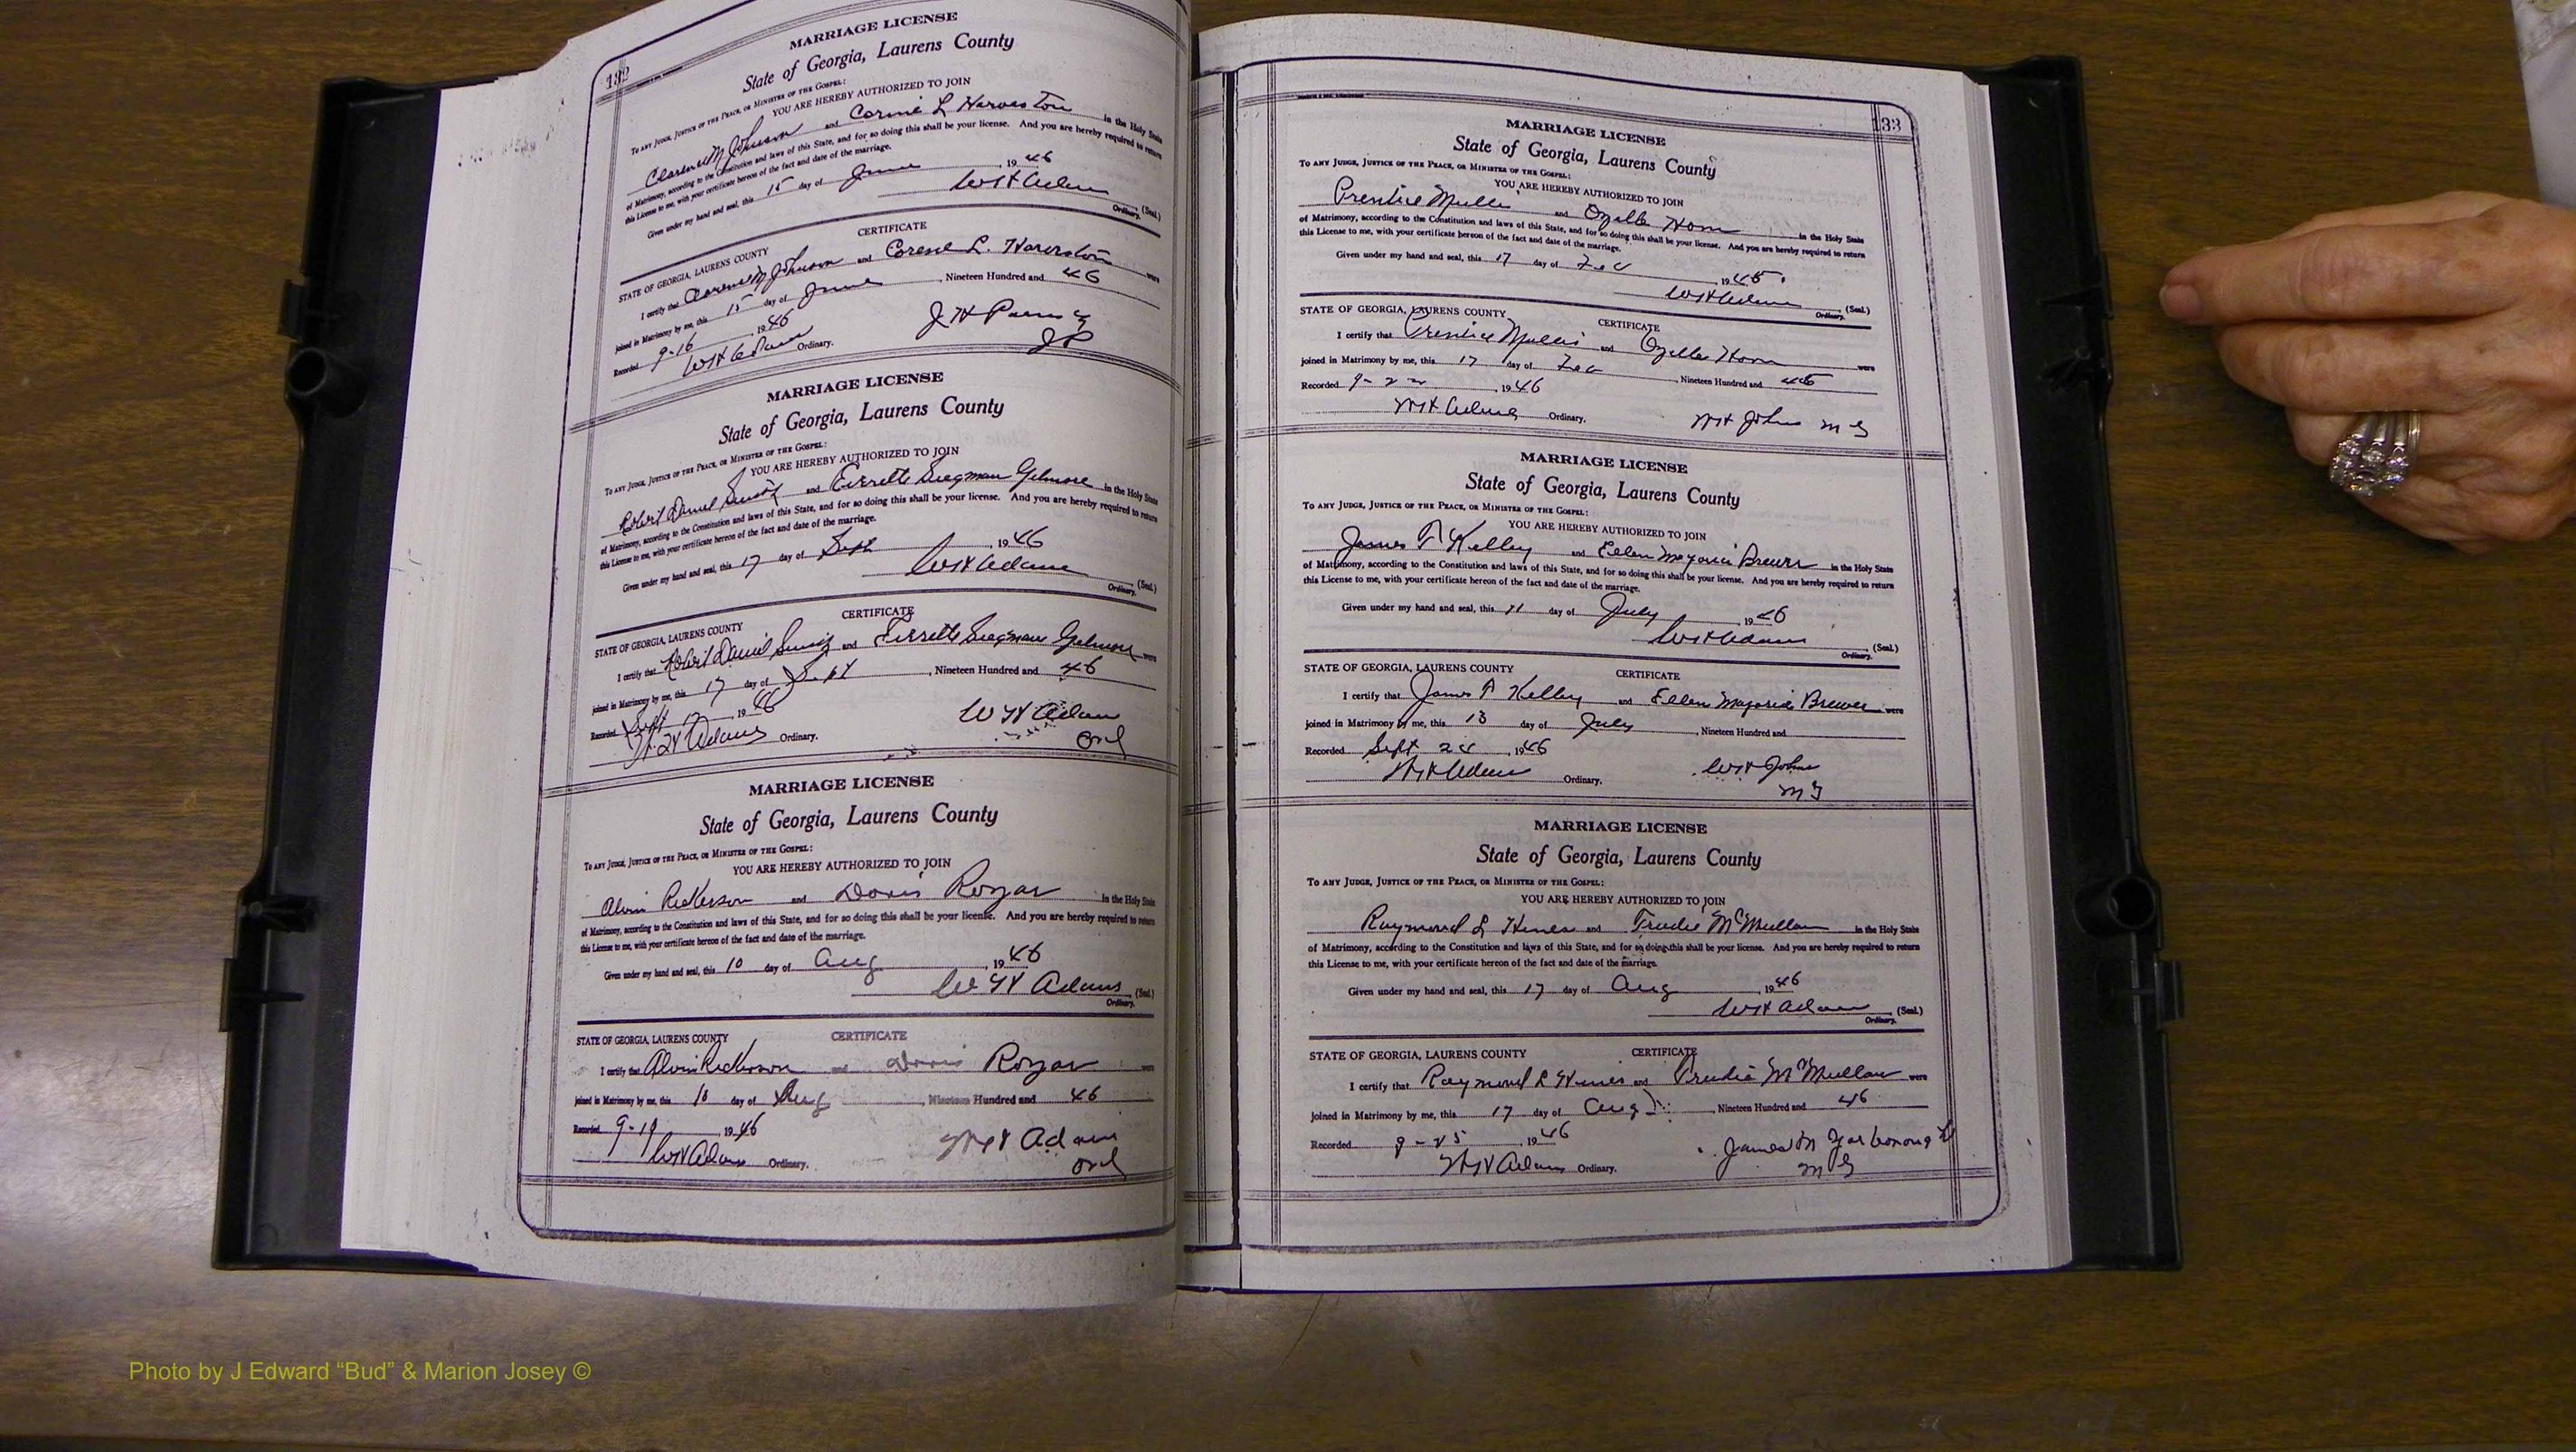 182
MARRIAGE LICENSE
State of Georgia, Laurens County
To any Judge, Justice of the Peace, or Minister of the Gospel:
YOU ARE HEREBY AUTHORIZED TO JOIN
Clarence M Johnson and L in the Holy State
of Matrimony, according to the Constitution and laws of this State, and for so doing this shall be your license. And you are hereby required to return
this License to me, with your certificate hereon of the fact and date of the marriage.
Given under my hand and seal, this 15 day of June, 1946
WH Adams (Seal.)
Ordinary.
CERTIFICATE
STATE OF GEORGIA, LAURENS COUNTY
I certify that Clarence M Johnson and L. were
joined in Matrimony by me, this 15 day of June, Nineteen Hundred and 46
Recorded 9-16, 1946
WH Adams Ordinary.
J H
JP
MARRIAGE LICENSE
State of Georgia, Laurens County
To any Judge, Justice of the Peace, or Minister of the Gospel:
YOU ARE HEREBY AUTHORIZED TO JOIN
Robert Daniel and in the Holy State
of Matrimony, according to the Constitution and laws of this State, and for so doing this shall be your license. And you are hereby required to return
this License to me, with your certificate hereon of the fact and date of the marriage.
Given under my hand and seal, this 17 day of Sept, 1946
WH Adams (Seal.)
Ordinary.
CERTIFICATE
STATE OF GEORGIA, LAURENS COUNTY
I certify that Robert Daniel and were
joined in Matrimony by me, this 17 day of Sept, Nineteen Hundred and 46
Recorded Sept 17, 1946
WH Adams Ordinary.
WH Adams
Ord
MARRIAGE LICENSE
State of Georgia, Laurens County
To any Judge, Justice of the Peace, or Minister of the Gospel:
YOU ARE HEREBY AUTHORIZED TO JOIN
Alvin Rickerson and Doris Rozar in the Holy State
of Matrimony, according to the Constitution and laws of this State, and for so doing this shall be your license. And you are hereby required to return
this License to me, with your certificate hereon of the fact and date of the marriage.
Given under my hand and seal, this 10 day of Aug, 1946
WH Adams (Seal.)
Ordinary.
CERTIFICATE
STATE OF GEORGIA, LAURENS COUNTY
I certify that Alvin Rickerson and Doris Rozar were
joined in Matrimony by me, this 10 day of Aug, Nineteen Hundred and 46
Recorded 9-19, 1946
WH Adams Ordinary.
WH Adams
Ord
133
MARRIAGE LICENSE
State of Georgia, Laurens County
To any Judge, Justice of the Peace, or Minister of the Gospel:
YOU ARE HEREBY AUTHORIZED TO JOIN
Prentice Mullis and Ozelle Horn in the Holy State
of Matrimony, according to the Constitution and laws of this State, and for so doing this shall be your license. And you are hereby required to return
this License to me, with your certificate hereon of the fact and date of the marriage.
Given under my hand and seal, this 17 day of, 1945
WH Adams (Seal.)
Ordinary.
STATE OF GEORGIA, LAURENS COUNTY
CERTIFICATE
I certify that Prentice Mullis and Ozelle Horn were
joined in Matrimony by me, this 17 day of, Nineteen Hundred and 45
Recorded 9-22, 1946
WH Adams Ordinary.
WH Johns M G
MARRIAGE LICENSE
State of Georgia, Laurens County
To any Judge, Justice of the Peace, or Minister of the Gospel:
YOU ARE HEREBY AUTHORIZED TO JOIN
James T Kelley and Ellen Majorie Brewer in the Holy State
of Matrimony, according to the Constitution and laws of this State, and for so doing this shall be your license. And you are hereby required to return
this License to me, with your certificate hereon of the fact and date of the marriage.
Given under my hand and seal, this 11 day of July, 1946
WH Adams (Seal.)
Ordinary.
STATE OF GEORGIA, LAURENS COUNTY
CERTIFICATE
I certify that James T Kelley and Ellen Majorie Brewer were
joined in Matrimony by me, this 13 day of July, Nineteen Hundred and
Recorded Sept 24, 1946
WH Adams Ordinary.
WH Johns
M G
MARRIAGE LICENSE
State of Georgia, Laurens County
To any Judge, Justice of the Peace, or Minister of the Gospel:
YOU ARE HEREBY AUTHORIZED TO JOIN
Raymond L Hines and Trudie McMullan in the Holy State
of Matrimony, according to the Constitution and laws of this State, and for so doing this shall be your license. And you are hereby required to return
this License to me, with your certificate hereon of the fact and date of the marriage.
Given under my hand and seal, this 17 day of Aug, 1946
WH Adams (Seal.)
Ordinary.
STATE OF GEORGIA, LAURENS COUNTY
CERTIFICATE
I certify that Raymond L Hines and Trudie McMullan were
joined in Matrimony by me, this 17 day of Aug, Nineteen Hundred and 46
Recorded 9-25, 1946
WH Adams Ordinary.
James M Yarborough
M G
Photo by J Edward “Bud” & Marion Josey ©